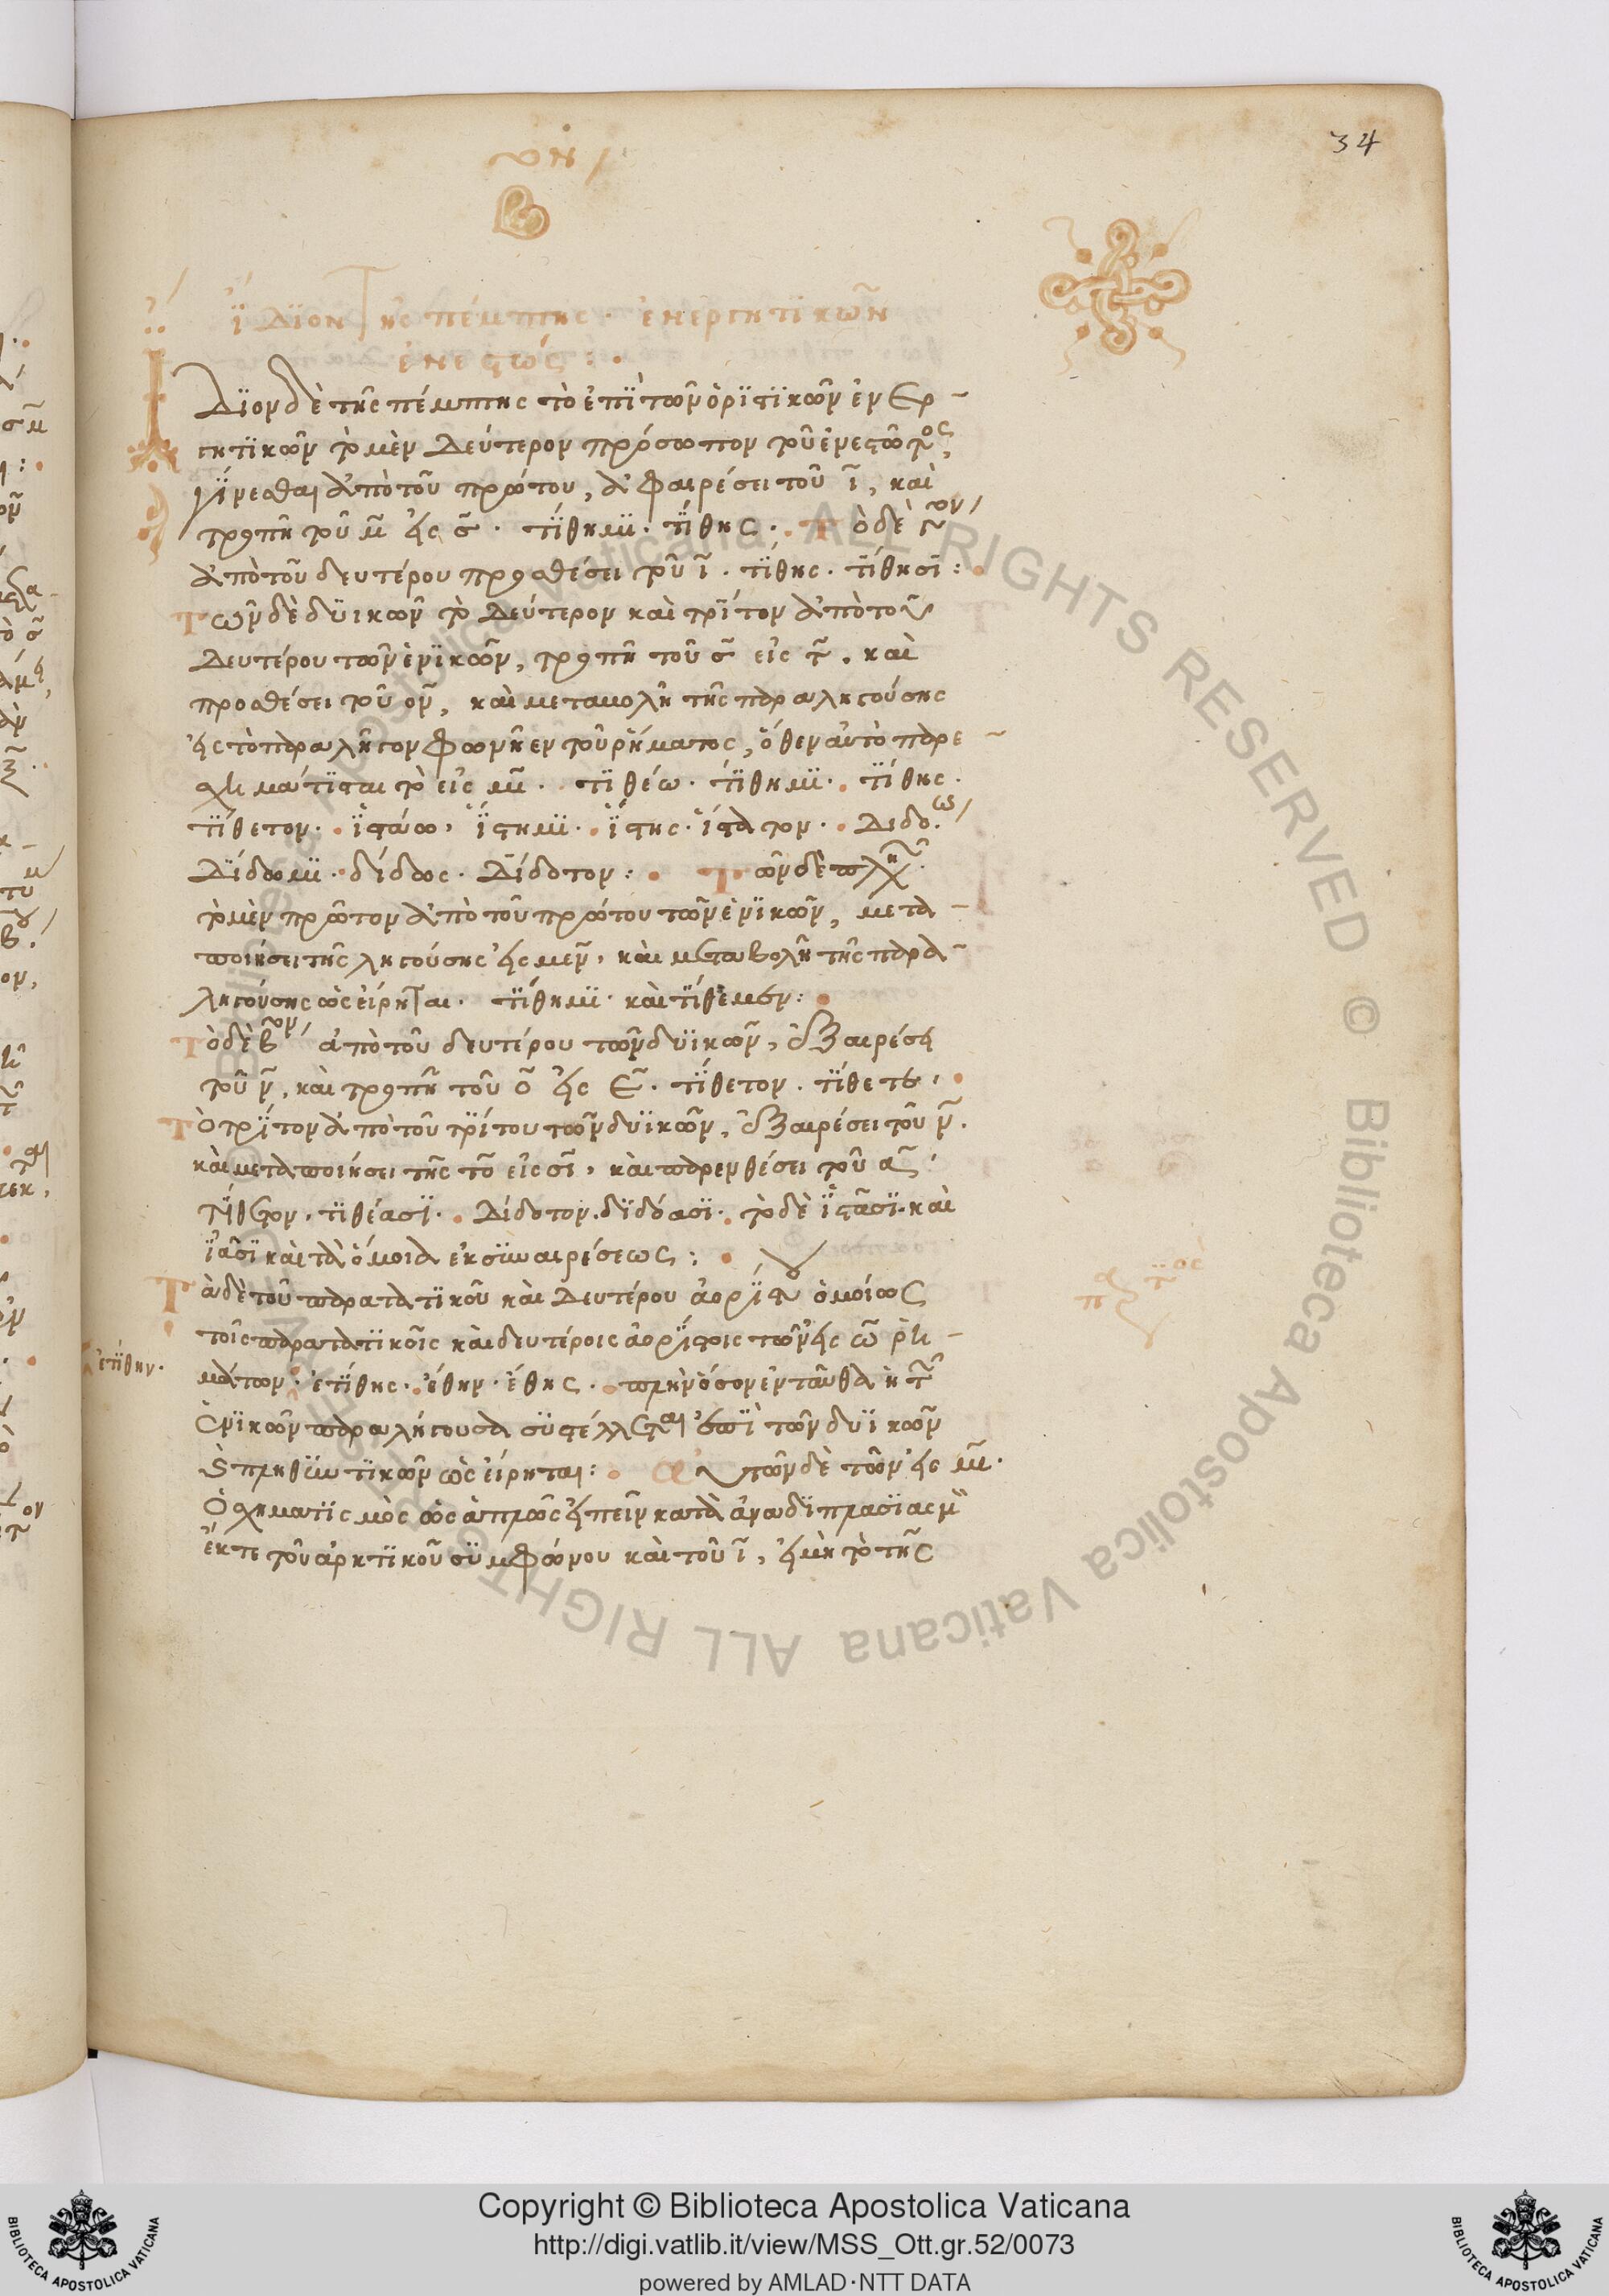 34
ἴδϊον τῆς πέμπτης · ἐνεργητϊκῶν
ἐνεστώς : ·
Ἴδϊον δὲ τῆς πέμπτης τὸ ἐπῒ τῶν ὁρϊστϊκῶν ἐνερ
γητϊκῶν τὸ μὲν δεύτερον πρόσωπον τοῦ ἐνεστῶτος,
γίνεσθαι ἀπὸ τοῦ πρώτου, ἀφαιρέσει τοῦ ῑ, καὶ
τροπῇ τοῦ μ̄ εἰς σ̄ · τίθημϊ · τίθης · Τὸ δὲ γ̄ον
ἀπὸ τοῦ δευτέρου προσθέσει τοῦ ῑ · τίθης · τίθησϊ :
Τῶν δὲ δυϊκῶν τὸ δεύτερον καὶ τρίτον ἀπὸ τοῦ
δευτέρου τῶν ἑνϊκῶν, τροπῇ τοῦ σ̄ εἰς τ̄ · καὶ
προσθέσει τοῦ ον̄, καὶ μεταβολῇ τῆς παραληγούσης
εἰς τὸ παραλῆγον φωνῆεν τοῦ ῥήματος, ὅθεν αὐτὸ παρε
σχημάτϊσται τὸ εἰς μῑ · τϊθέω · τίθημϊ · τίθης ·
τίθετον · ἱστάω, ἵστημϊ · ἵστης · ἵστατον · διδῶ ·
δίδωμϊ · δίδως · δίδοτον : Τῶν δὲ πληθ
τὸ μὲν πρῶτον ἀπὸ τοῦ πρώτου τῶν ἑνϊκῶν, μετα
ποιήσει τῆς ληγούσης εἰς μεν̄, καὶ μεταβολῇ τῆς παρα
ληγούσης ὡς εἴρηται · τίθημϊ · καὶ τίθεμεν :
Τὸ δὲ β̄ον ἀπὸ τοῦ δευτέρου τῶν δυϊκῶν, ἐξαιρέσει
τοῦ ν̄, καὶ τροπῇ τοῦ ο̄ εἰς ε̄ · τίθετον · τίθετε ·
Τὸ τρίτον ἀπὸ τοῦ τρίτου τῶν δυϊκῶν, ἐξαιρέσει τοῦ ν̄ ·
καὶ μεταποιήσει τῆς το̄ εἰς σῑ, καὶ παρενθέσει τοῦ ᾱ ·
τίθετον · τϊθέασϊ · δίδοτον · δϊδόασϊ · τὸ δὲ ἱστᾶσϊ · καὶ
ἱᾶσϊ καὶ τὰ ὅμοια ἐκ συναιρέσεως :
Τὰ δὲ τοῦ παρατατϊκοῦ καὶ δευτέρου ἀορίστου ὁμοίως
τοῖς παρατατϊκοῖς καὶ δευτέροις ἀορίστοις τῶν εἰς ω̄ ῥη
ἐτίθην ·
μάτων · ἐτίθης · ἔθην · ἔθης · πλὴν ὅσον ἐνταῦθα ἡ τῶν
ἑνϊκῶν παραλήγουσα συστέλλεται ἐπῒ τῶν δυϊκῶν
καὶ πληθυντϊκῶν ὡς εἴρηται : Αὐτῶν δὲ τῶν εἰς μῑ ·
ὁ σχηματϊσμὸς ὡς ἁπλῶς εἰπεῖν κατὰ ἀναδϊπλασϊασμὸν
ἔκ τε τοῦ ἀρκτϊκοῦ συμφώνου καὶ τοῦ ῑ, εἰ μὴ τὸ τῆς
Copyright © Biblioteca Apostolica Vaticana
http://digi.vatlib.it/view/MSS_Ott.gr.52/0073
powered by AMLAD·NTT DATA